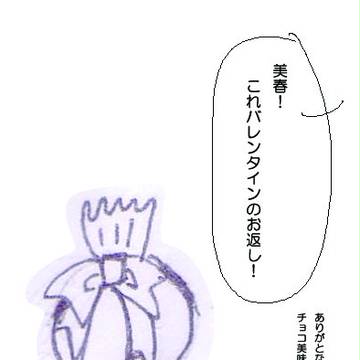 美春！
これバレンタインのお返し！
ありがとな
チョコ美味